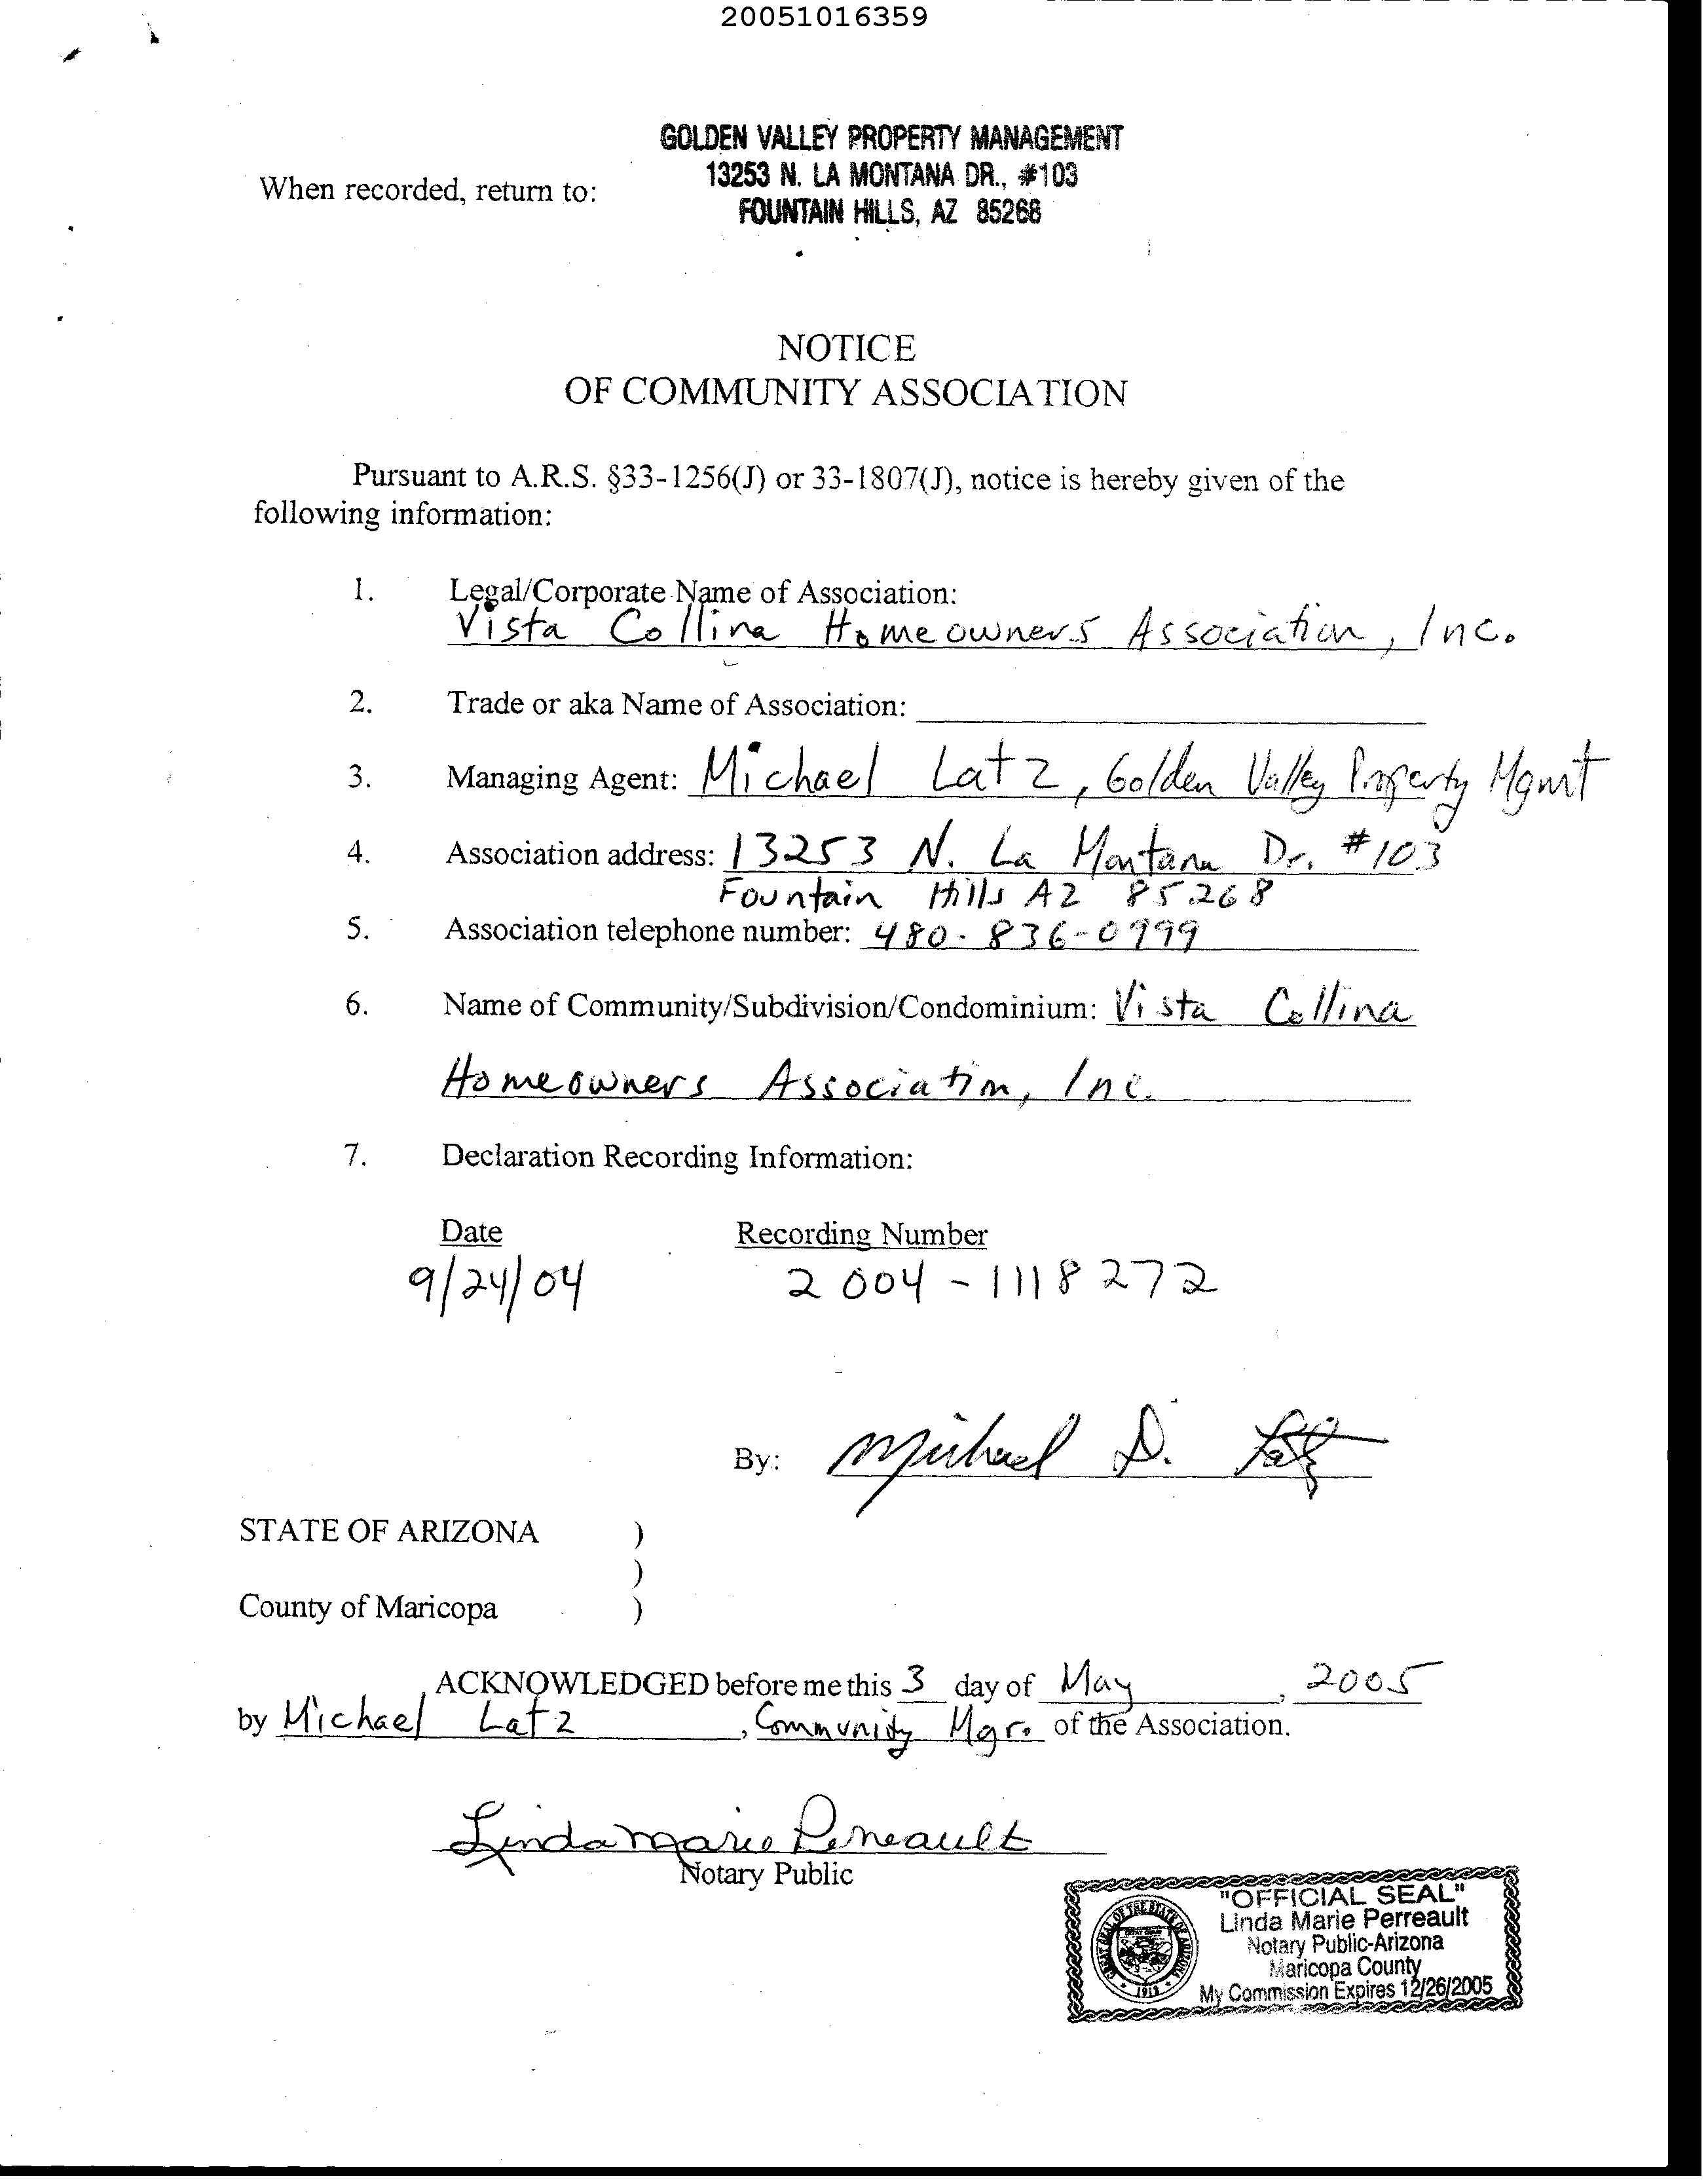 20051016359
GOLDEN VALLEY PROPERTY MANAGEMENT
13253 N. LA MONTANA DR., #103
When recorded, return to:
FOUNTAIN HILLS, AZ 85268
NOTICE
OF COMMUNITY ASSOCIATION
Pursuant to A.R.S. §33-1256(J) or 33-1807(J), notice is hereby given of the
following information:
1. Legal/Corporate Name of Association:
Vista Collina Homeowners Association, Inc.
2. Trade or aka Name of Association:
3. Managing Agent: Michael Latz, Golden Valley Property Mgmt
4. Association address: 13253 N. La Montana Dr. #103
Fountain Hills AZ 85268
5. Association telephone number: 480-836-0999
6. Name of Community/Subdivision/Condominium: Vista Collina
Homeowners Association, Inc.
7. Declaration Recording Information:
Date Recording Number
9/24/04 2004-1118272
By: Michael D. Latz
STATE OF ARIZONA )
)
County of Maricopa )
ACKNOWLEDGED before me this 3 day of May, 2005
by Michael Latz, Community Mgr. of the Association.
Linda Marie Perreault
Notary Public
"OFFICIAL SEAL"
Linda Marie Perreault
Notary Public-Arizona
Maricopa County
My Commission Expires 12/26/2005
GREAT SEAL OF THE STATE OF ARIZONA
1912